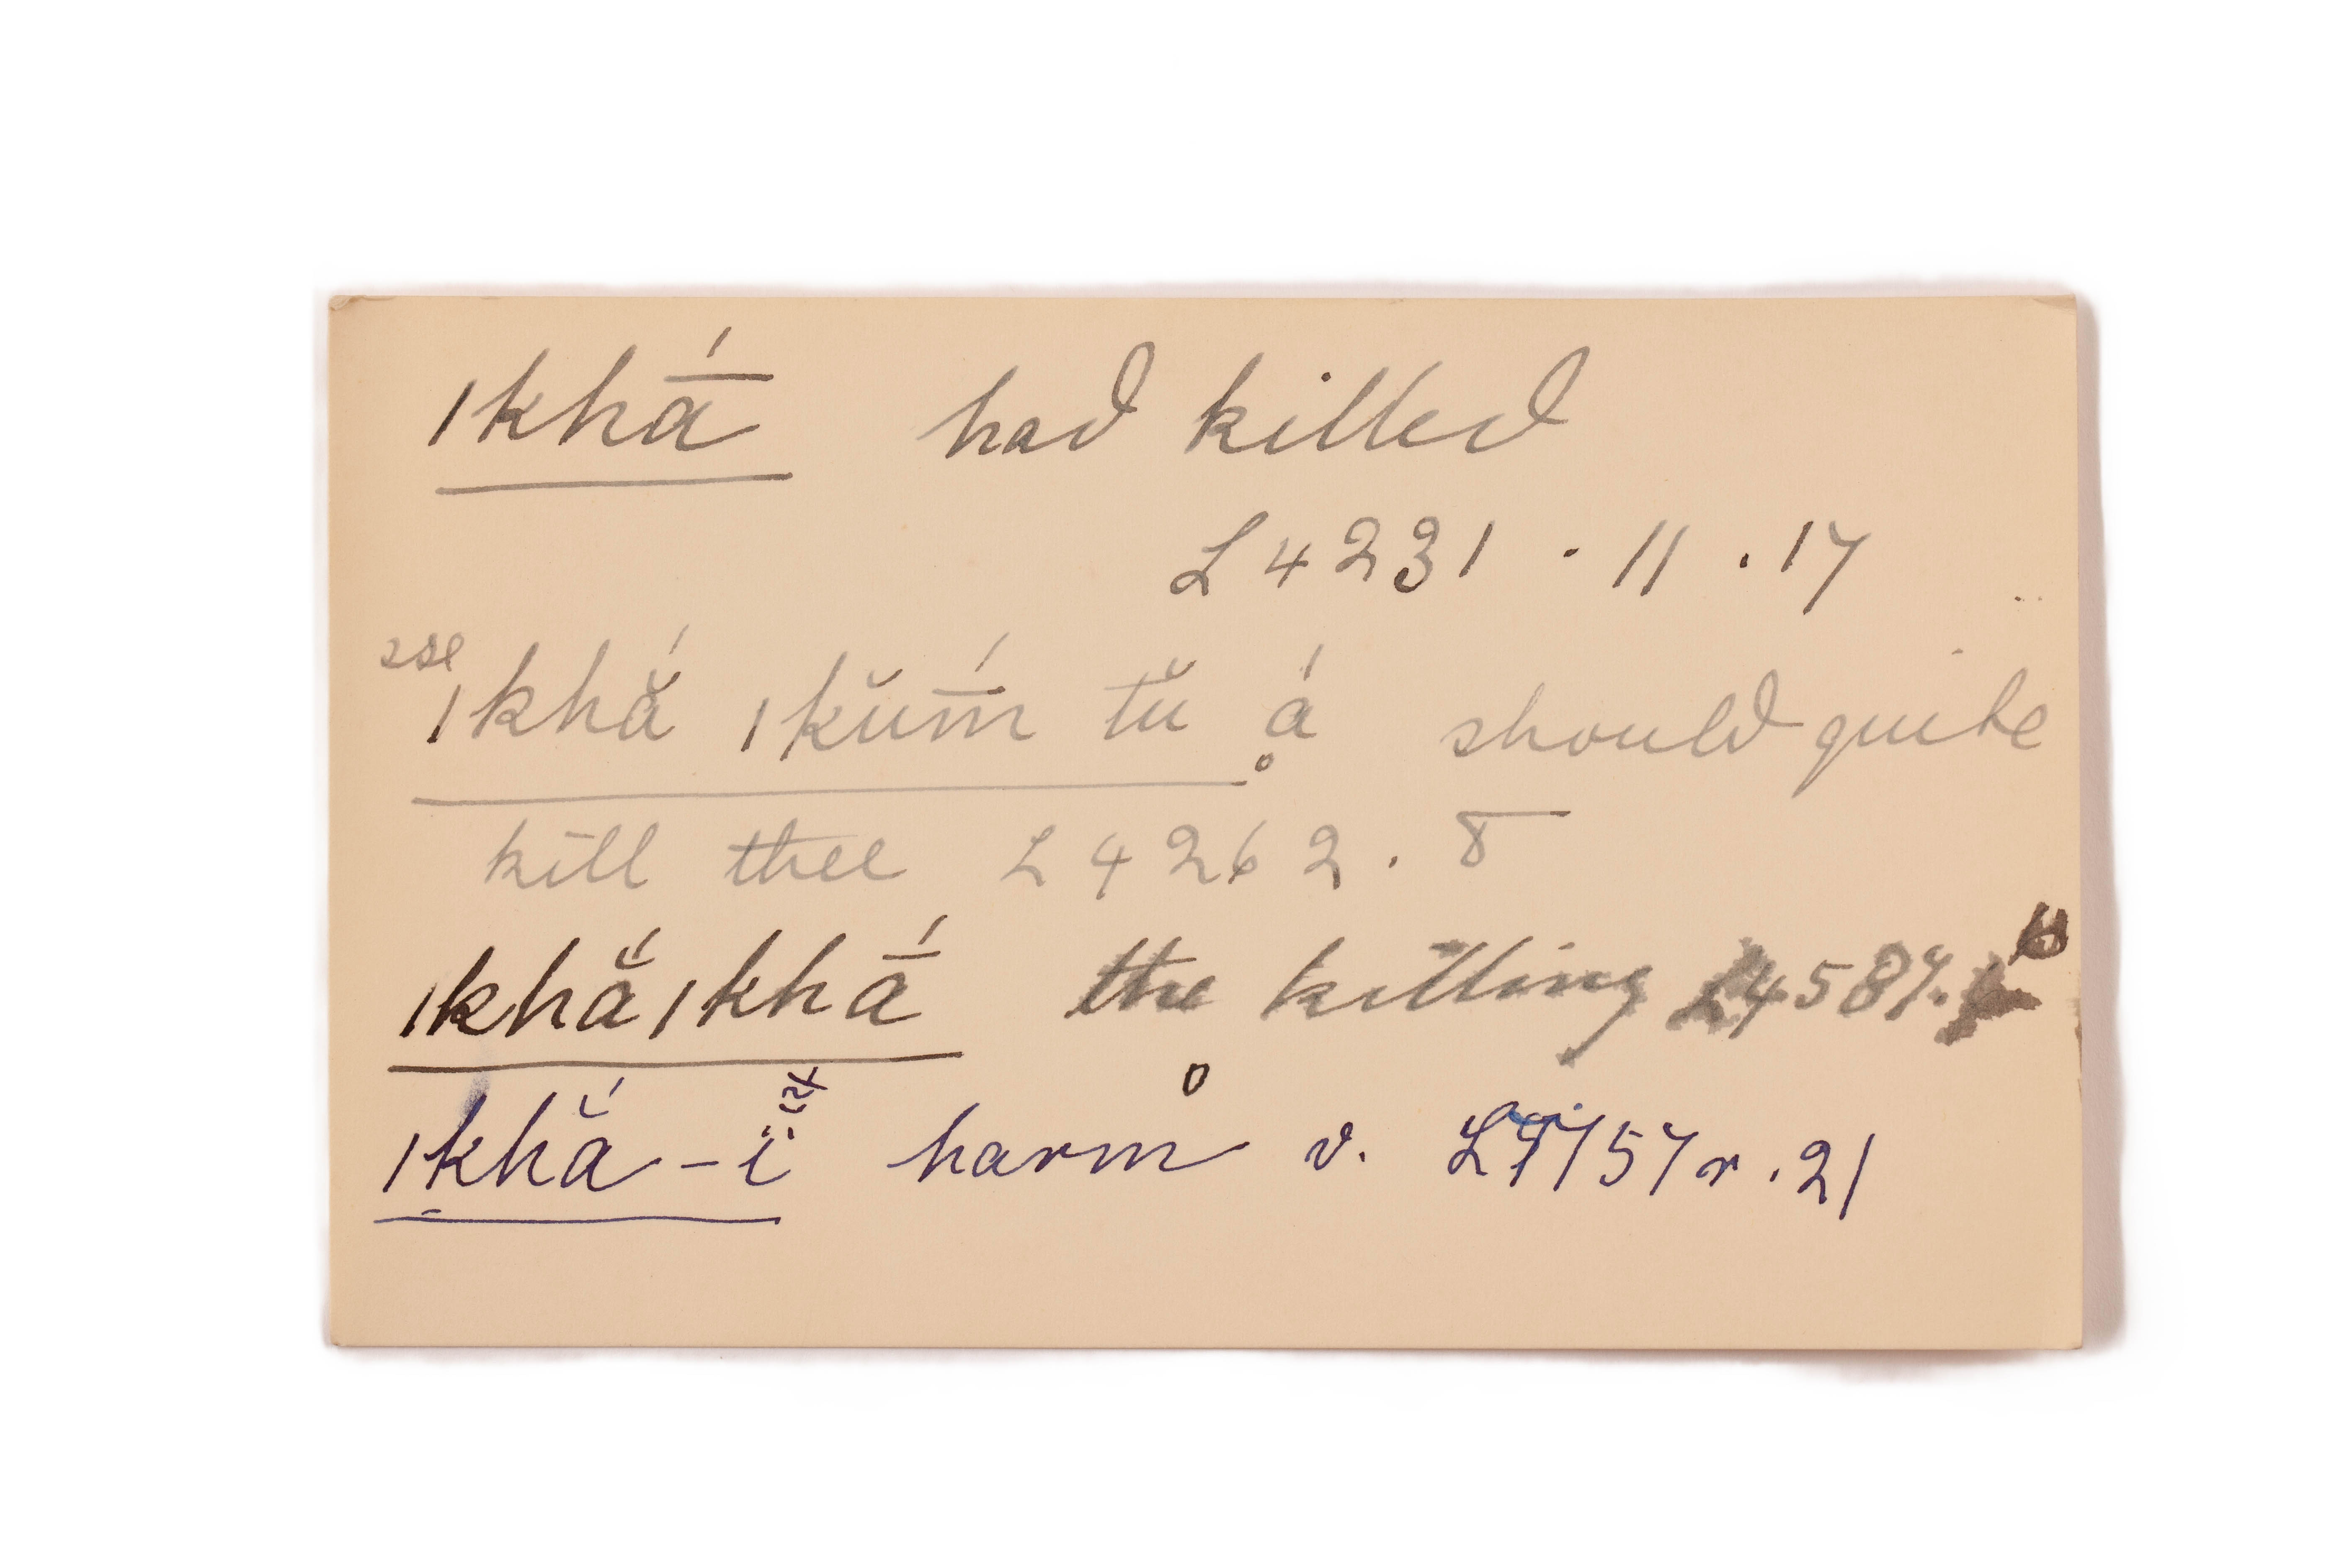 ǀkhā́ had killed
L 4231 . 11 . 17
sse ǀkhắ ǀkŭḿ̄ tŭ ḁ́ should quite
kill thee L 4262 . 8
ǀkhắǀkhā́ the killing L4587.
ǀkhắ-ĭ harm v. 57r.21